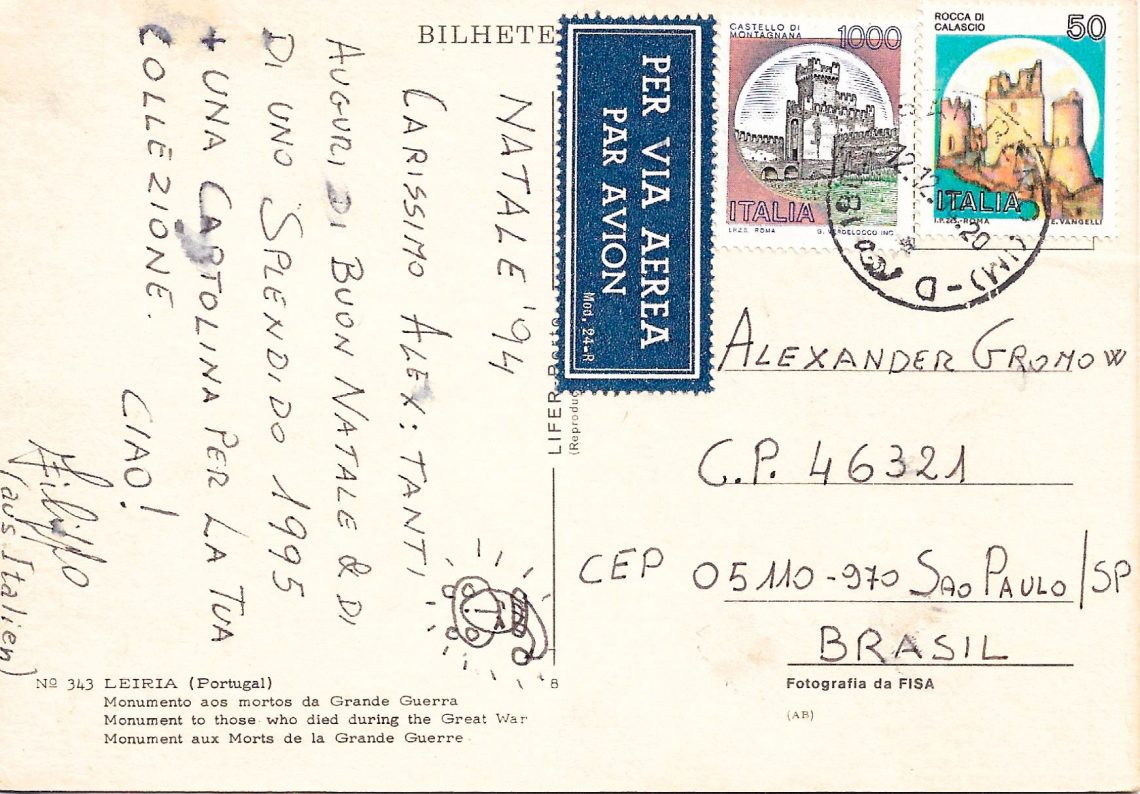 BILHETE
NATALE '94
CARISSIMO ALEX: TANTI
AUGURI DI BUON NATALE & DI
DI UNO SPLENDIDO 1995
+ UNA CARTOLINA PER LA TUA
COLLEZIONE.
CIAO!
Filippo
(aus Italien)
Nº 343 LEIRIA (Portugal)
Monumento aos mortos da Grande Guerra
Monument to those who died during the Great War
Monument aux Morts de la Grande Guerre
PER VIA AEREA
PAR AVION
Mod. 24-R
LIFER
(Reproduç
8
CASTELLO DI
MONTAGNANA
1000
ITALIA
I.P.Z.S. ROMA G. VERDELOCCO INC.
ROCCA DI
CALASCIO
50
ITALIA
I.P.Z.S.-ROMA E. VANGELLI
(IM)-D
ALEXANDER GROMOW
C.P. 46321
CEP 05110-970 SAO PAULO/SP
BRASIL
Fotografia da FISA
(AB)